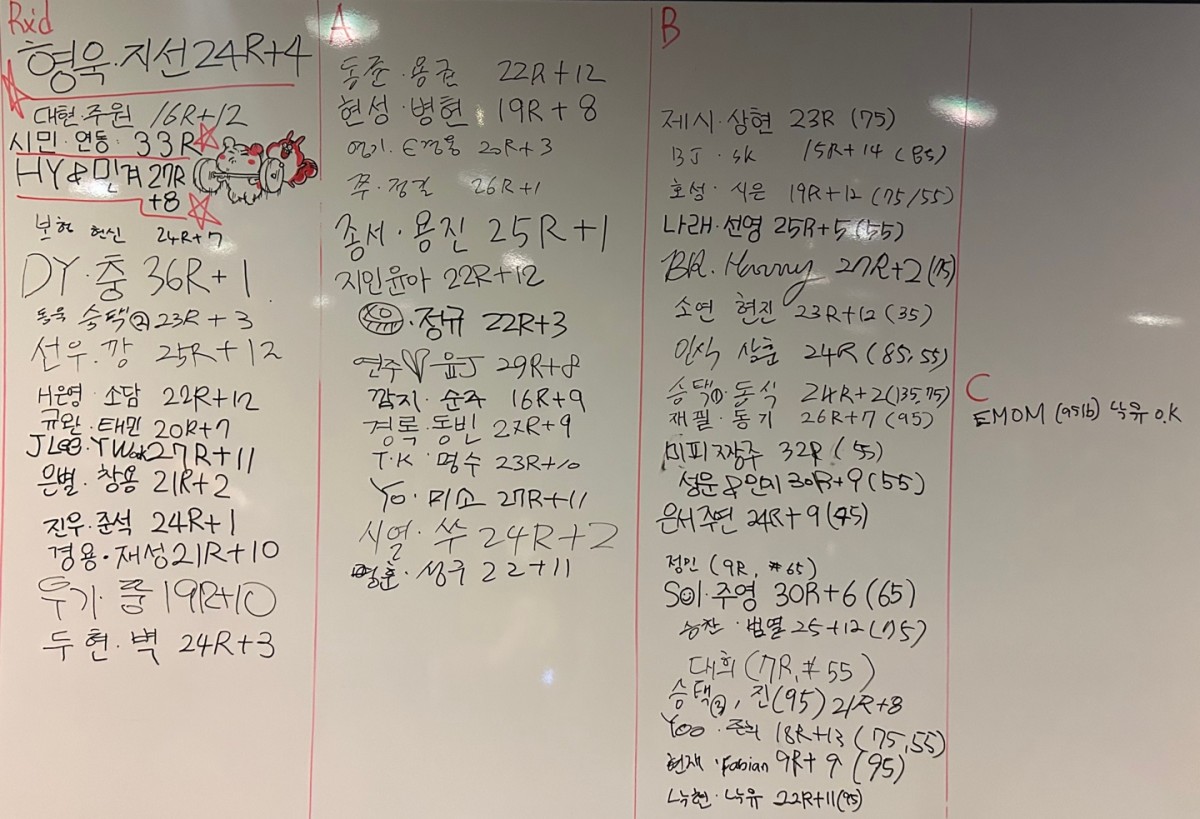 Rx'd
형욱·지선 24R+4
대현·주원 16R+12
시민·연동· 33R
HY&민경 27R
+8
보현 현신 24R+7
DY·충 36R+1
동욱 숭택② 23R+3
선우·깡 25R+12
H은영·소담 22R+12
규완·태민 20R+7
JLee·YWook 27R+11
은별·창용 21R+2
진우·준석 24R+1
경용·재성 21R+10
우기·쭘 19R+10
두현·벽 24R+3
A
동준·용권 22R+12
현성·병현 19R+8
20R+3
쭈·정길 26R+1
종서·용진 25R+1
지민윤아 22R+12
·정규 22R+3
연주♡윤J 29R+8
깜지·순주 16R+9
경록·동빈 27R+9
T.K·명수 23R+10
Yo·미소 27R+11
시열·쑤 24R+2
명훈·성구 22+11
B
제시·상현 23R (75)
BJ·SK 15R+14 (85)
호성·식은 19R+12 (75/55)
나래·선영 25R+5 (55)
BR. Harry 27R+2 (75)
소연 현진 23R+12 (35)
인식 상훈 24R (85,55)
승택①·동식 24R+2 (135,75)
재필·동기 26R+7 (95)
미피 장주 32R (55)
성윤&민지 30R+9 (55)
은서 주연 24R+9 (45)
정민 (9R, #65)
SOl·주영 30R+6 (65)
승찬·범열 25+12 (75)
대희 (7R, #55)
승택②, 진(95) 21R+8
Yoo· 18R+13 (75,55)
현재·Fabian 9R+9 (95)
낙현·낙유 22R+11 (95)
C
EMOM (95lb) 낙유 O.K